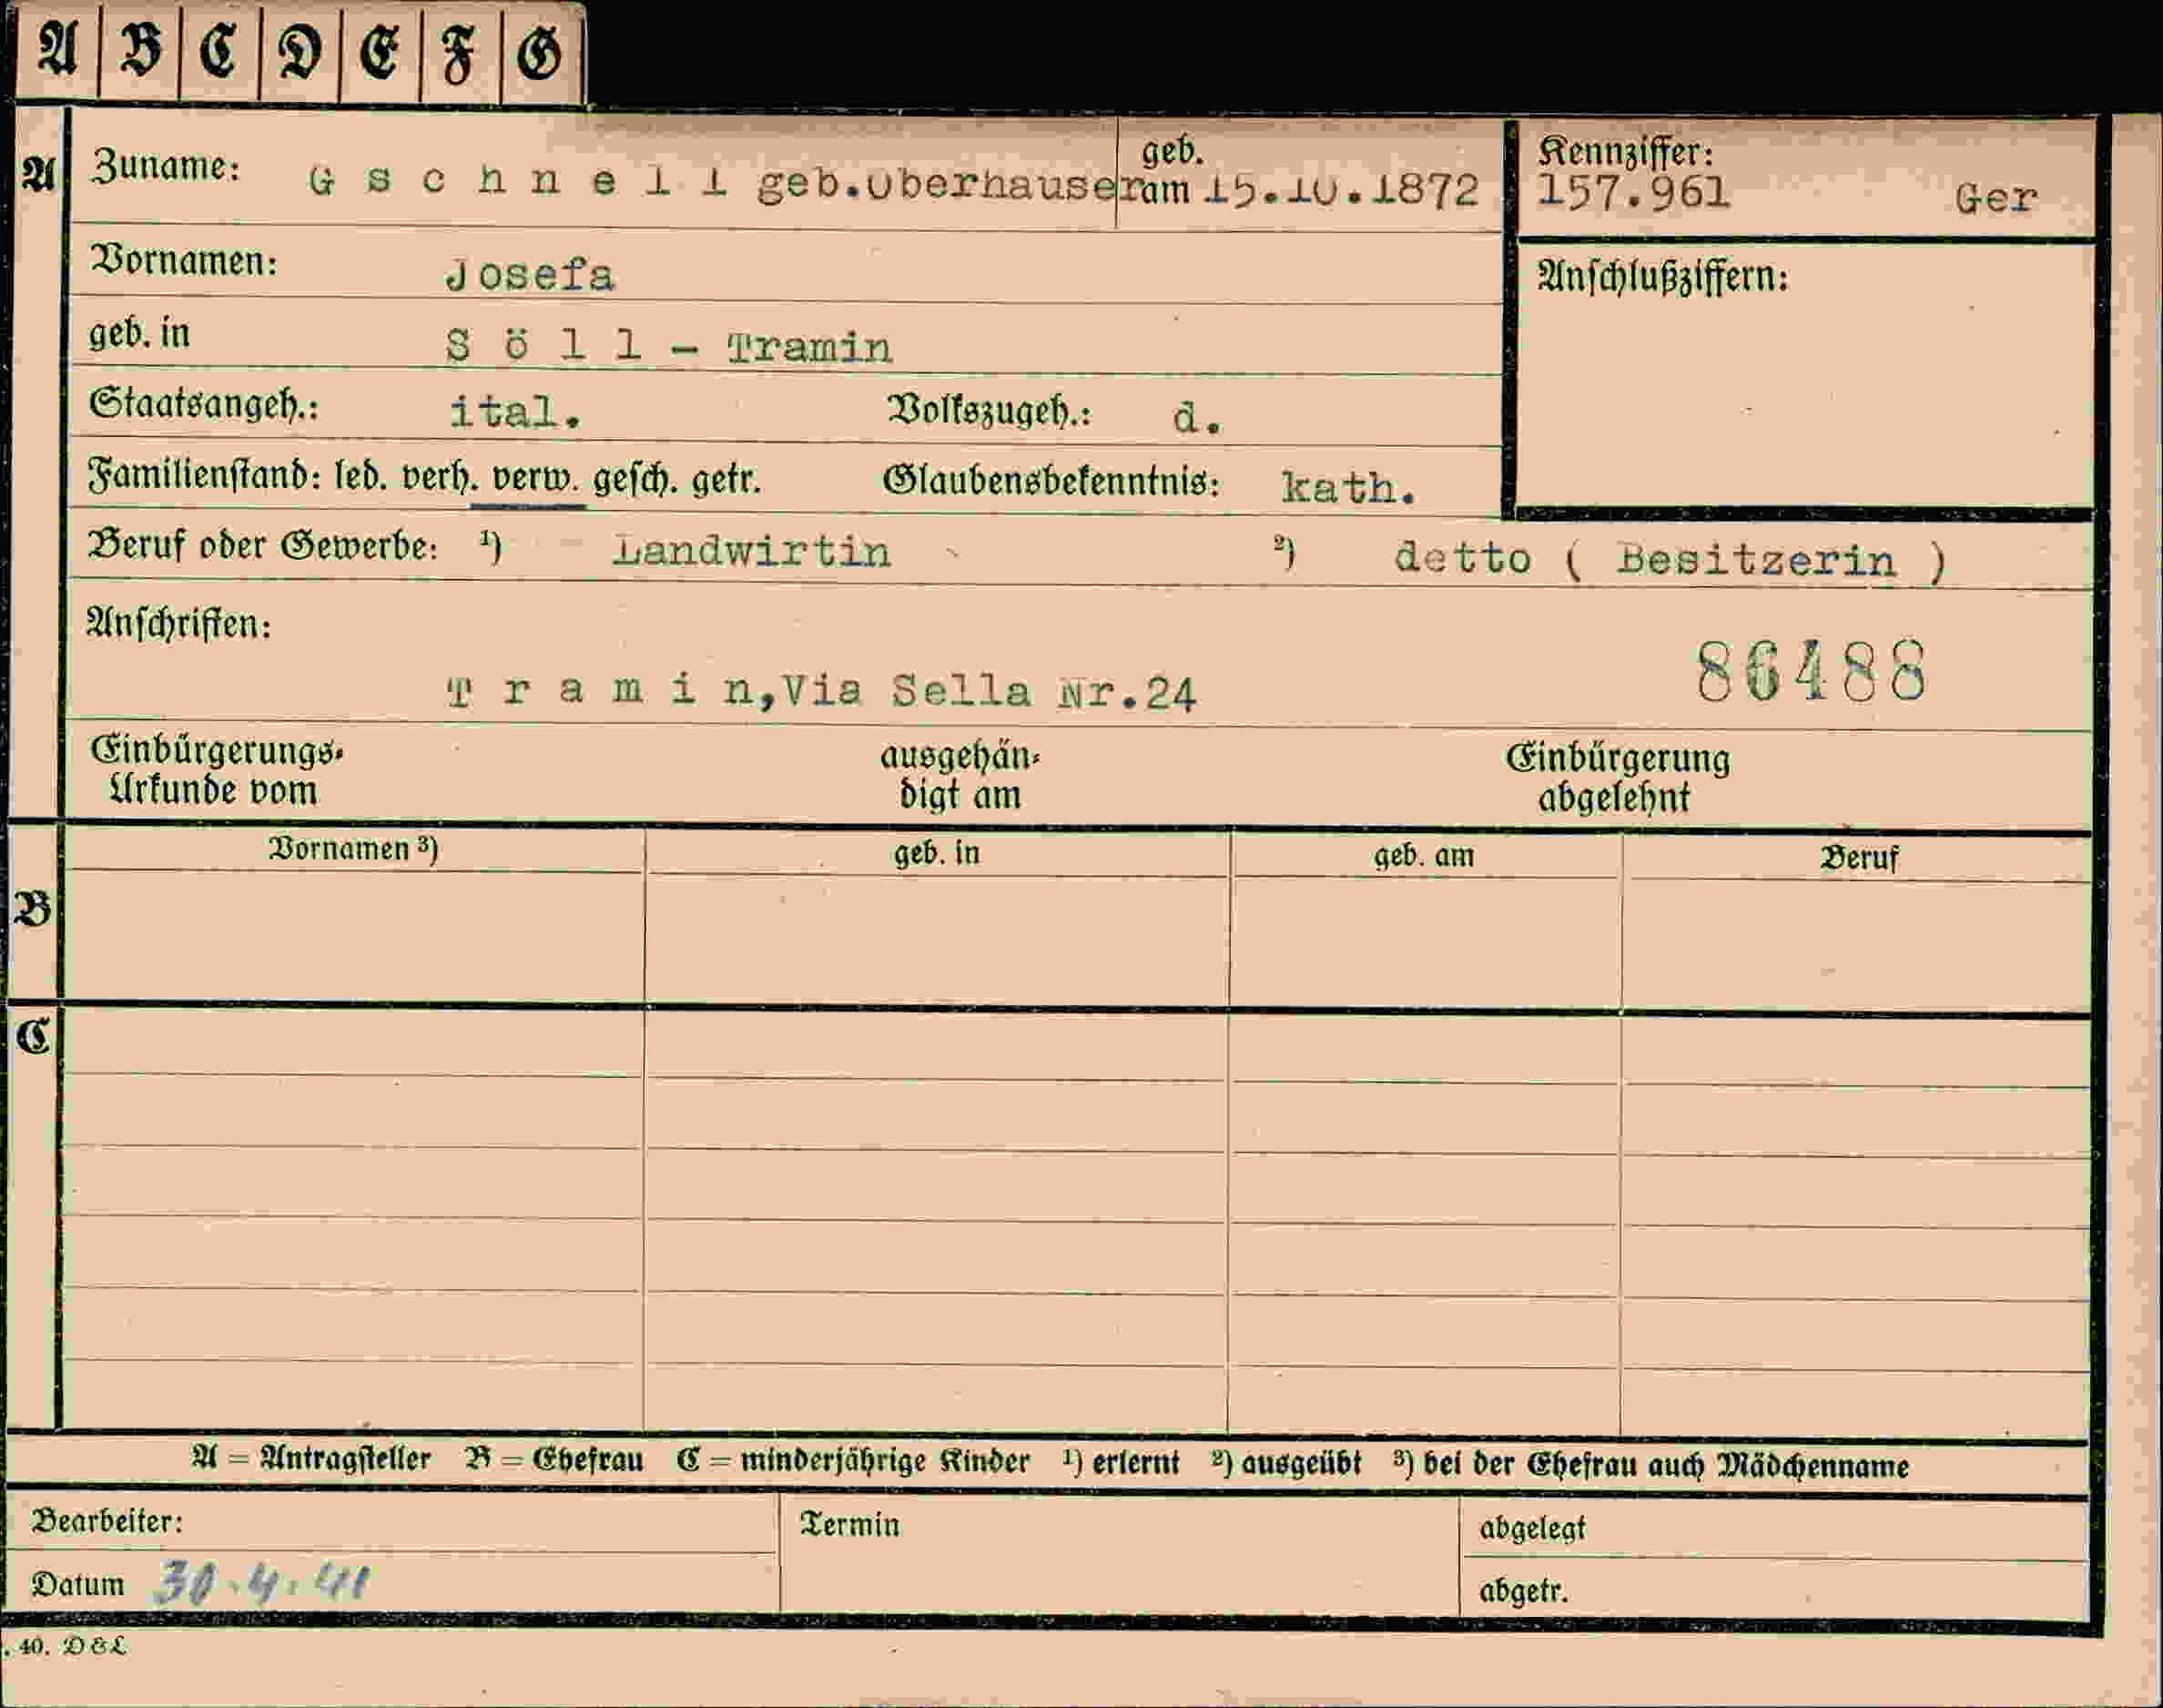 A B C D E F G
A Zuname: G s c h n e l l geb.Oberhauser geb. am 15.10.1872 Kennziffer: 157.961 Ger
Vornamen: Josefa Anschlußziffern:
geb. in S ö l l - Tramin
Staatsangeh.: ital. Volkszugeh.: d.
Familienstand: led. verh. verw. gesch. getr. Glaubensbekenntnis: kath.
Beruf oder Gewerbe: ¹) Landwirtin ²) detto ( Besitzerin )
Anschriften:
T r a m i n,Via Sella Nr.24 86488
Einbürgerungs- Urkunde vom ausgehän- digt am Einbürgerung abgelehnt
Vornamen ³) geb. in geb. am Beruf
B
C
A = Antragsteller B = Ehefrau C = minderjährige Kinder ¹) erlernt ²) ausgeübt ³) bei der Ehefrau auch Mädchenname
Bearbeiter: Termin abgelegt
Datum 30.4.41 abgetr.
. 40. D&L